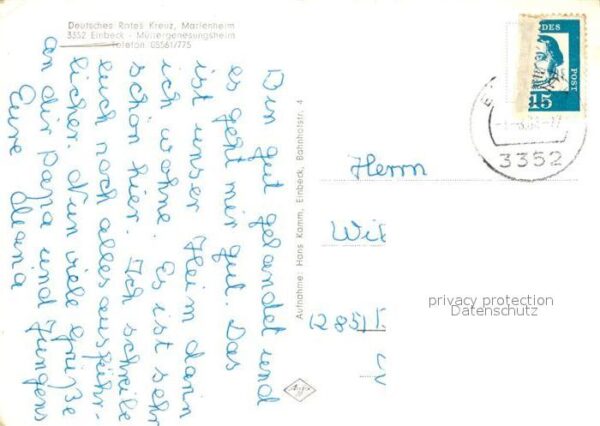 Deutsches Rotes Kreuz, Marienheim
3352 Einbeck - Müttergenesungsheim
Telefon: 05561/775
Bin gut gelandet und
es geht mir gut. Das
ist unser Heim darin
ich wohne. Es ist sehr
schön hier. Ich schreibe
euch noch alles ausführ-
licher. Nun viele Grüße
an dir Papa und Jungens
Eure
Mama
Aufnahme: Hans Kamm, Einbeck, Bahnhofstr. 4
Agfa
DES
POST
15
3352
Herrn
Wil
privacy protection
Datenschutz